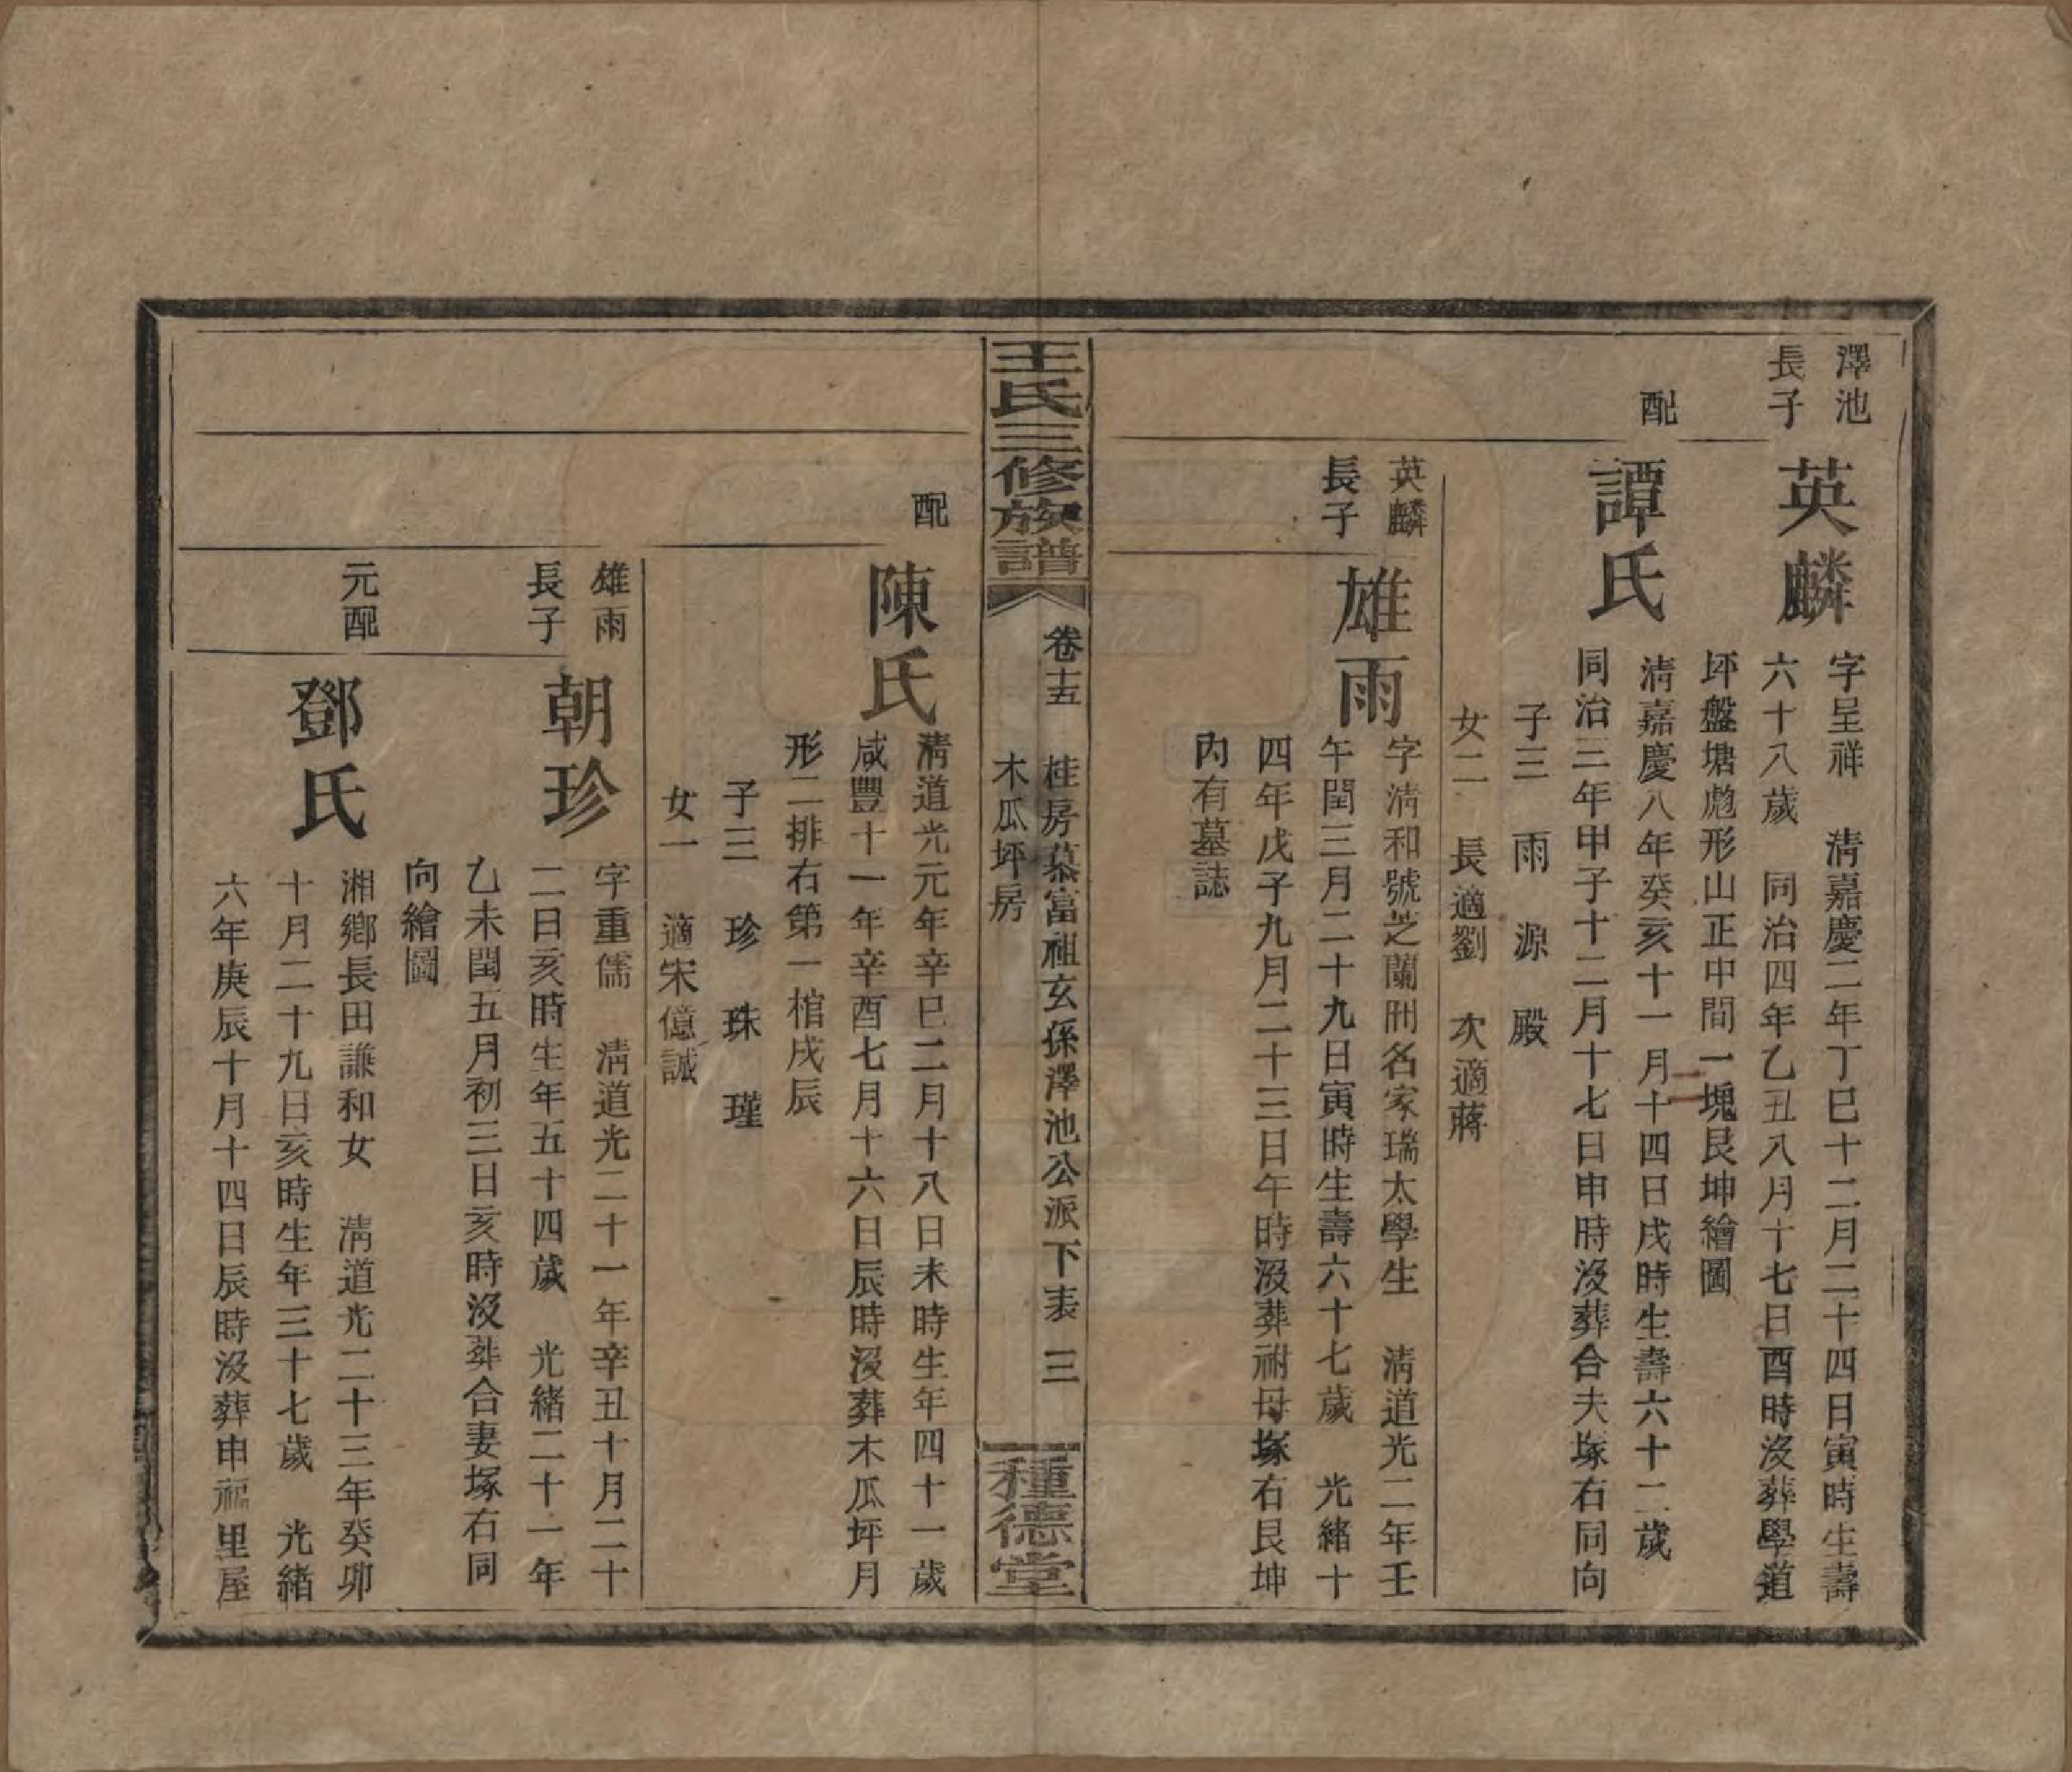 澤池
長子
英麟
字呈祥　清嘉慶二年丁巳十二月二十四日寅時生壽
六十八歲　同治四年乙丑八月十七日酉時沒葬學道
坪盤塘彪形山正中間一塊艮坤繪圖
配
譚氏
清嘉慶八年癸亥十一月十四日戌時生壽六十二歲
同治三年甲子十二月十七日申時沒葬合夫塚右同向
子三　雨　源　殿
女二　長適劉　次適蔣
英麟
長子
雄雨
字清和號芝蘭册名家瑞太學生　清道光二年壬
午閏三月二十九日寅時生壽六十七歲　光緒十
四年戊子九月二十三日午時沒葬祔母塚右艮坤
內有墓誌
王氏三修族譜
卷十五
桂房慕富祖玄孫澤池公派下表　三
木瓜坪房
種德堂
配
陳氏
清道光元年辛巳二月十八日未時生年四十一歲
咸豐十一年辛酉七月十六日辰時沒葬木瓜坪月
形二排右第一棺戌辰
子三　珍　珠　瑾
女一　適宋億誠
雄雨
長子
朝珍
字重儒　清道光二十一年辛丑十月二十
二日亥時生年五十四歲　光緒二十一年
乙未閏五月初三日亥時沒葬合妻塚右同
向繪圖
元配
鄧氏
湘鄉長田謙和女　清道光二十三年癸卯
十月二十九日亥時生年三十七歲　光緒
六年庚辰十月十四日辰時沒葬申福里屋